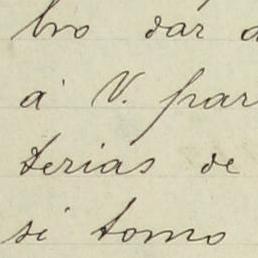 bro dar a
á V. par
terias de
si tomo